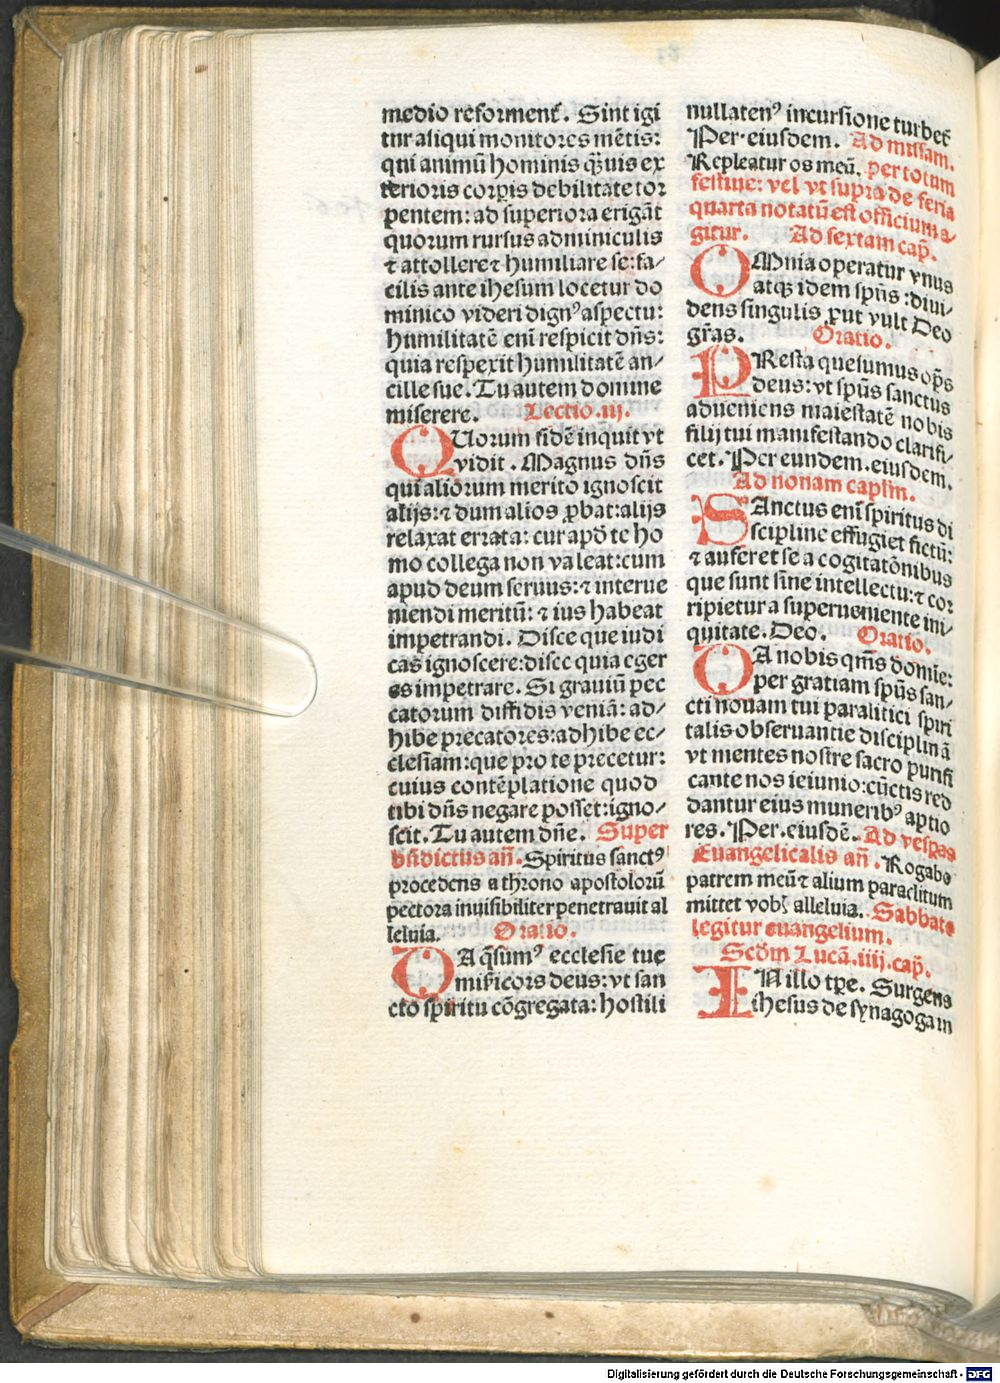 medio reformenť. Sint igi
tur aliqui monitores mētis:
qui animū hominis q̄uis ex
terioris corꝑis debilitate tor
pentem: ad superiora erigāt
quorum rursus adminiculis
⁊ attollere ⁊ humiliare se: fa⸗
cilis ante ihesum locetur do
minico videri dignꝰ aspectu:
humilitatē eni respicit dn̄s:
quia respexit humilitatē an⸗
cille sue. Tu autem domine
miserere. Lectio .iij.
QUorum fidē inquit vt
vidit. Magnus dn̄s
qui aliorum merito ignoscit
alijs: ⁊ dum alios ꝓbat: alijs
relaxat errata: cur apd̄ te ho
mo collega non valeat: cum
apud deum seruus: ⁊ interue
niendi meritū: ⁊ ius habeat
impetrandi. Disce que iudi
cas ignoscere: disce quia eger
es impetrare. Si grauiū pec
catorum diffidis veniā: ad⸗
hibe precatores: adhibe ec⸗
clesiam: que pro te precetur:
cuius contēplatione quod
tibi dn̄s negare posset: igno⸗
scit. Tu autem dn̄e. Super
bn̄dictus an̄. Spiritus sanctꝰ
procedens a throno apostolorū
pectora inuisibiliter penetrauit al
leluia. Oratio.
DA q̄sumꝰ ecclesie tue
misericors deus: vt san
cto spiritu cōgregata: hostili
nullatenꝰ incursione turbeť
Per. eiusdem. Ad missam.
Repleatur os meū. per totum
festiue: vel vt supra de feria
quarta notatū est officium a⸗
gitur. Ad sextam cap̄.
OMnia operatur vnus
atqꝫ idem sp̄us: diui⸗
dens singulis ꝓut vult Deo
gr̄as. Oratio.
PResta quesumus op̄s
deus: vt sp̄us sanctus
adueniens maiestatē nobis
filij tui manifestando clarifi⸗
cet. Per eundem. eiusdem.
Ad nonam caplm̄.
SAnctus eni spiritus di
scipline effugiet fictū:
⁊ auferet se a cogitatōnibus
que sunt sine intellectu: ⁊ cor
ripietur a superueniente ini⸗
quitate. Deo. Oratio.
DA nobis qm̄s domīe:
per gratiam sp̄us san⸗
cti nouam tui paraliti​ci spiri
talis obseruantie disciplinā
vt mentes nostre sacro purifi
cante nos ieiunio: cūctis red
dantur eius muneribꝰ aptio
res. Per. eiusdē. Ad vesꝑas
Euangelicalis an̄. Rogabo
patrem meū ⁊ alium paraclitum
mittet vobꝭ alleluia. Sabbato
legitur euangelium.
Scd̄m Lucā. iiij. cap̄.
IN illo tp̄e. Surgens
ihesus de synagoga in
Digitalisierung gefördert durch die Deutsche Forschungsgemeinschaft - DFG